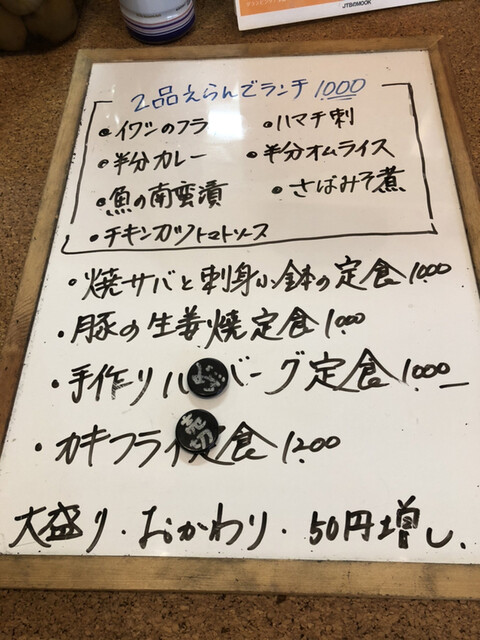 JTBのMOOK
2品えらんでランチ 1000
・イワシのフライ ・ハマチ刺
・半分カレー ・半分オムライス
・魚の南蛮漬 ・さばみそ煮
・チキンカツトマトソース
・焼サバと刺身小鉢の定食 1000
・豚の生姜焼定食 1000
・手作りハンバーグ定食 1000
・カキフライ定食 1200
売切
大盛り・おかわり・50円増し.